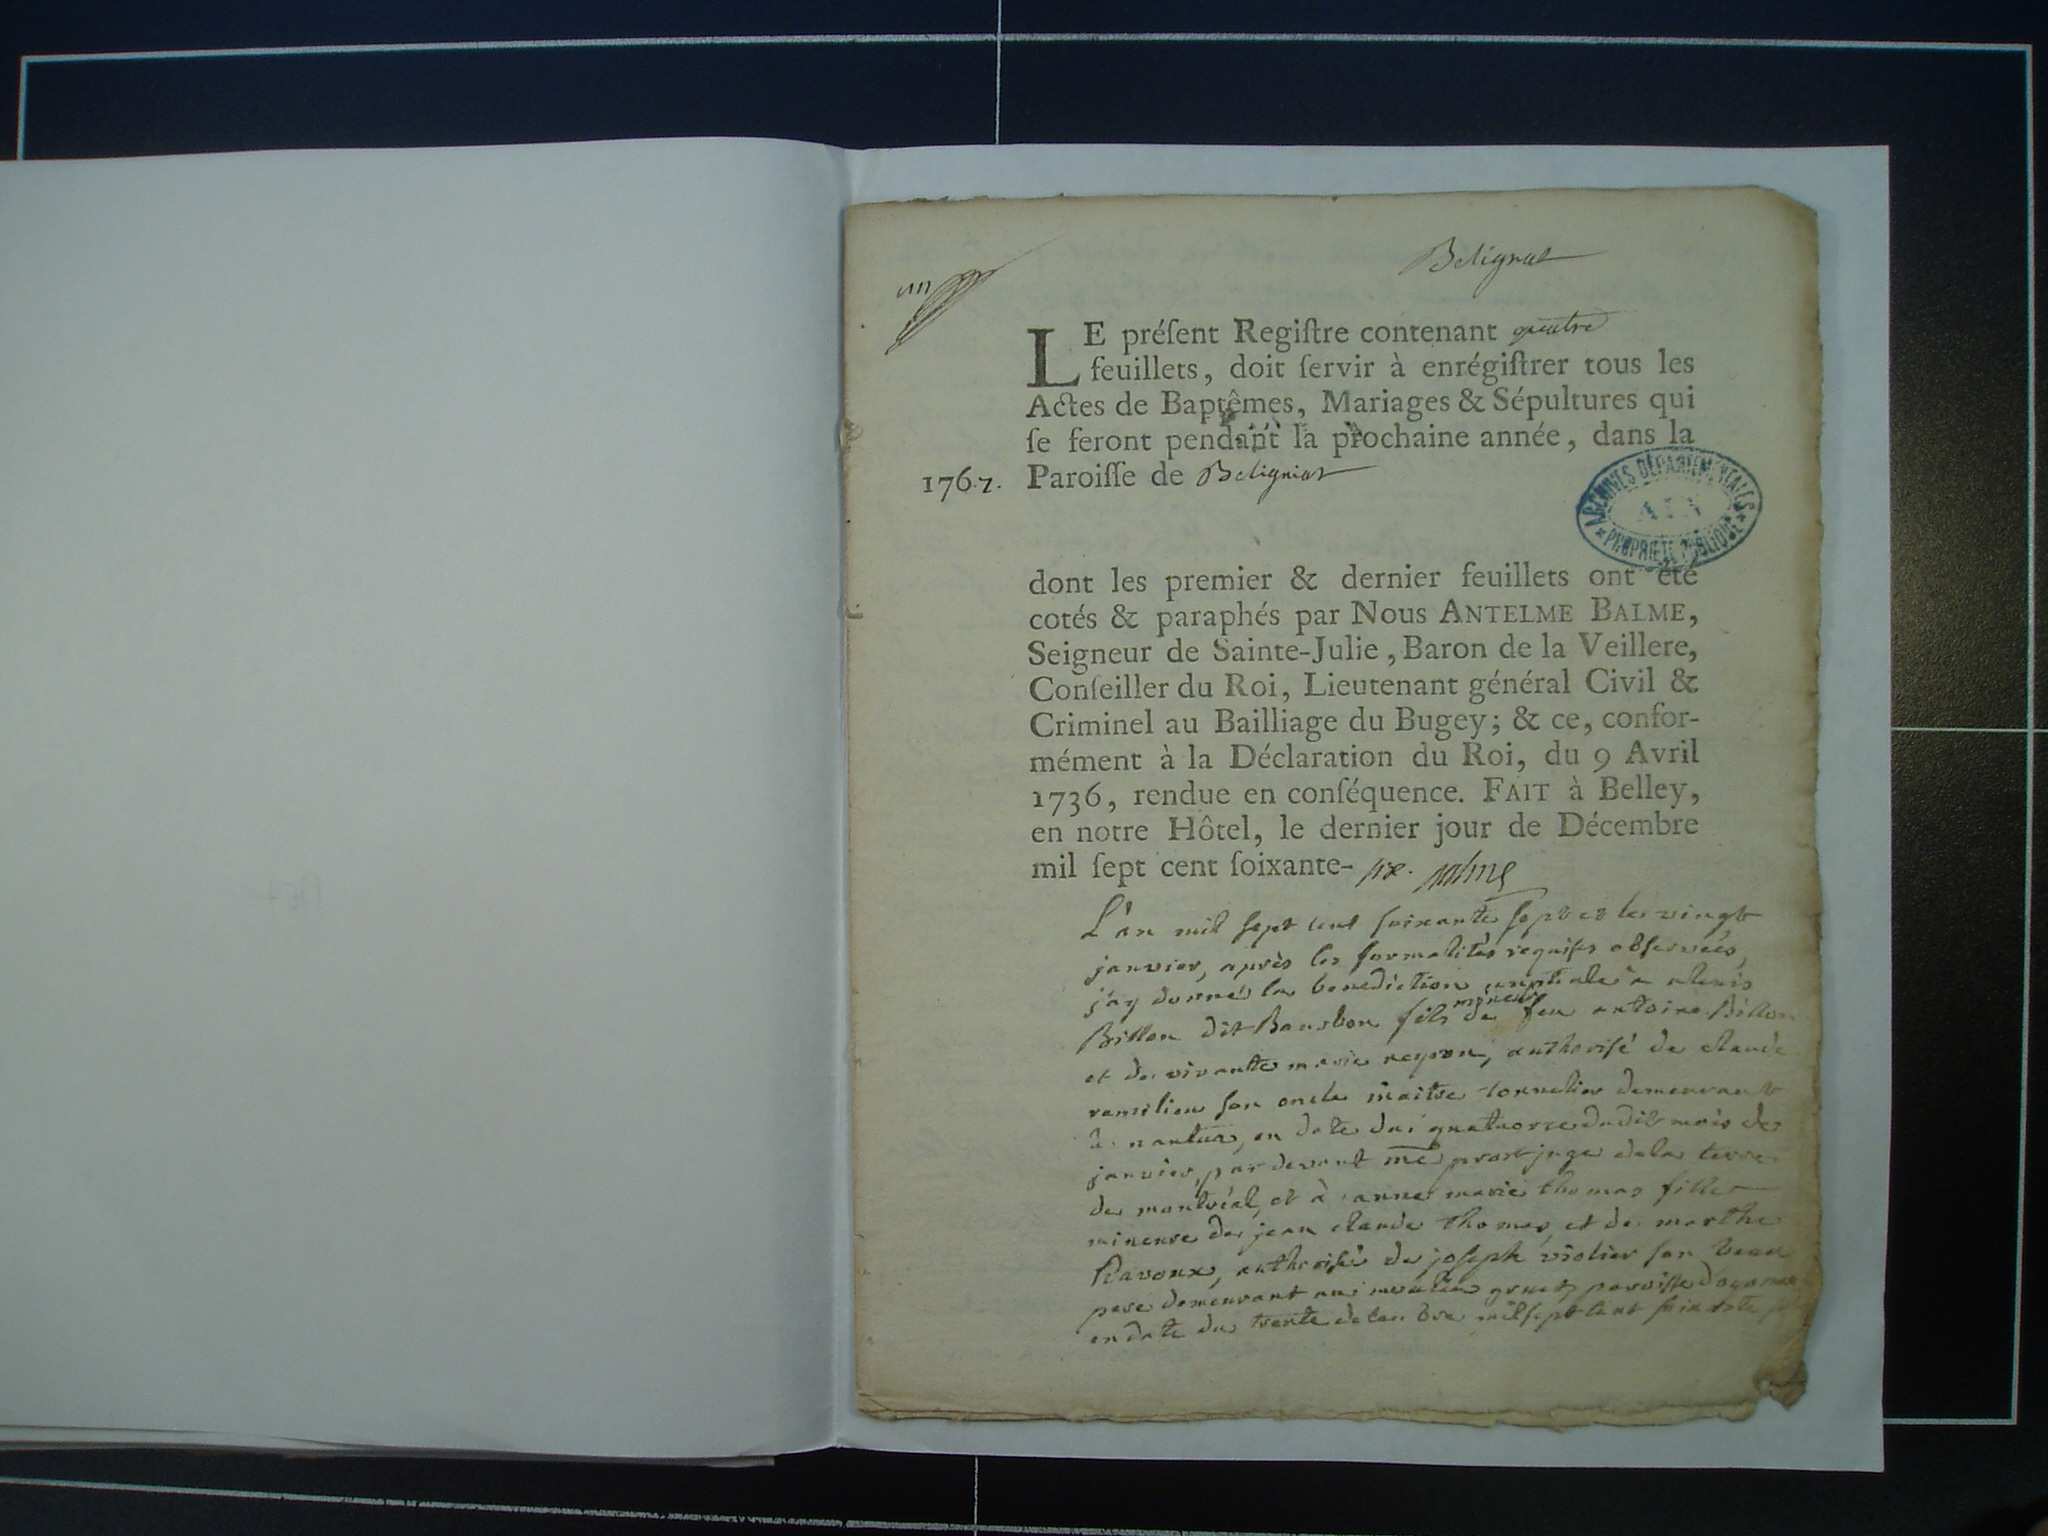 Belignat
un
LE préſent Regiſtre contenant quatre
feuillets, doit ſervir à enrégiſtrer tous les
Actes de Baptêmes, Mariages & Sépultures qui
ſe feront pendant la prochaine année, dans la
1767. Paroiſſe de Beligniat
ARCHIVES DÉPARTEMENTALES
AIN
PROPRIÉTÉ PUBLIQUE
dont les premier & dernier feuillets ont été
cotés & paraphés par Nous ANTELME BALME,
Seigneur de Sainte-Julie, Baron de la Veillere,
Conſeiller du Roi, Lieutenant général Civil &
Criminel au Bailliage du Bugey; & ce, confor-
mément à la Déclaration du Roi, du 9 Avril
1736, rendue en conſéquence. FAIT à Belley,
en notre Hôtel, le dernier jour de Décembre
mil ſept cent ſoixante-six. Balme
L'an mil sept cent soixante sept et le vingt
janvier, après les formalités requises observées,
j'ay donné la benediction nuptiale a alexis
Billon dit Bourbon fils mineur de feu antoine Billon
et de vivante marie, authorisé de claude
son oncle maitre tonnelier demeurant
à nantua, en date du quatuorze dudit mois de
janvier, par devant me prost juge de la terre
de montréal, et à anne marie thomas fille
mineure de jean claude thomas, et de marthe
Ravoux, authorisée de joseph violier son beau
pere demeurant au moulin gruet, paroisse
en date du trente decembre mil sept cent soixante